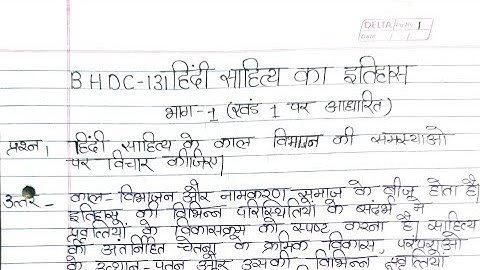 DELTA Pg No. 1
Date / /
BHDC-131 हिंदी साहित्य का इतिहास
भाग-1 (खंड 1 पर आधारित)
प्रश्न1 हिंदी साहित्य के काल विभाजन की समस्याओ
पर विचार कीजिए।
उत्तर - काल-विभाजन और नामकरण समाज के बीज होता है।
इतिहास की विभिन्न परिस्थितियों के बंदर्भ में
प्रवृत्तियों के विकासक्रम को स्पष्ट करना है। साहित्य
की अंतर्निहित चेतना के क्रमिक विकास, परंपराओं
के उत्थान-पतन और उसकी विभिन्न प्रवृत्तियों